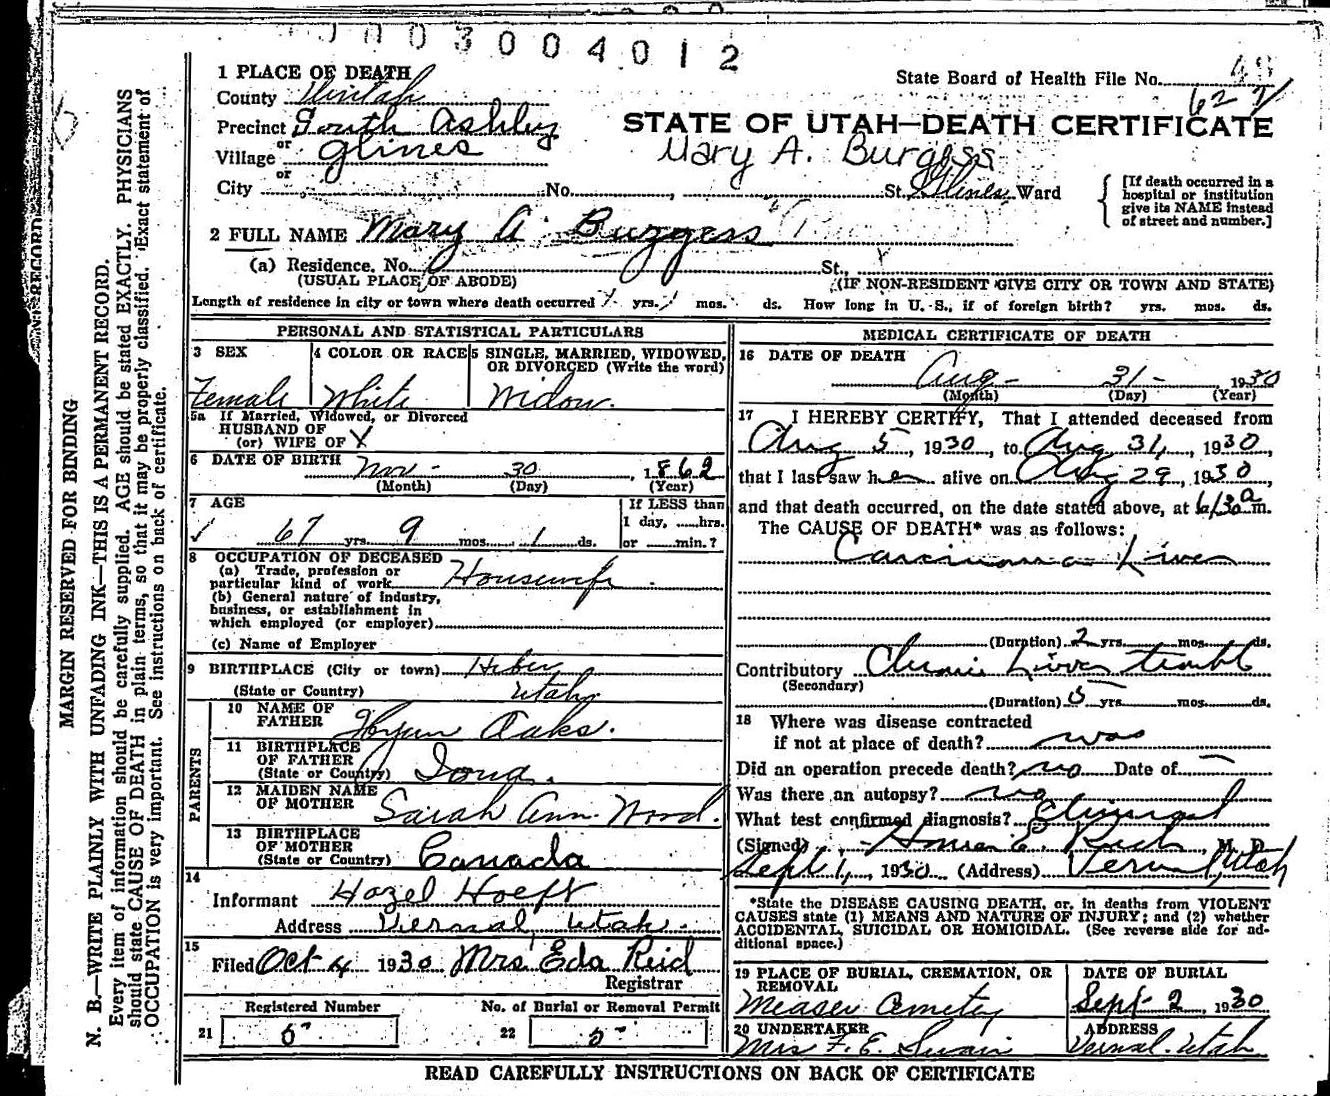 0003004012
1 PLACE OF DEATH
State Board of Health File No. 48
County Uintah
627
Precinct South Ashley
STATE OF UTAH—DEATH CERTIFICATE
or
Village Glines
Mary A. Burgess
or
City No. , St. Glines Ward
[If death occurred in a hospital or institution give its NAME instead of street and number.]
2 FULL NAME Mary A. Burgess
(a) Residence. No. St.,
(USUAL PLACE OF ABODE) (IF NON-RESIDENT GIVE CITY OR TOWN AND STATE)
Length of residence in city or town where death occurred yrs. mos. ds. How long in U. S., if of foreign birth? yrs. mos. ds.
PERSONAL AND STATISTICAL PARTICULARS
3 SEX
Female
4 COLOR OR RACE
White
5 SINGLE, MARRIED, WIDOWED, OR DIVORCED (Write the word)
Widow.
5a If Married, Widowed, or Divorced
HUSBAND OF
(or) WIFE OF X
6 DATE OF BIRTH Nov- 30 1862
(Month) (Day) (Year)
7 AGE
67 yrs. 9 mos. 1 ds.
If LESS than
1 day, hrs.
or min.?
8 OCCUPATION OF DECEASED
(a) Trade, profession or
particular kind of work Housewife
(b) General nature of industry,
business, or establishment in
which employed (or employer)
(c) Name of Employer
9 BIRTHPLACE (City or town) Heber
(State or Country) Utah
PARENTS
10 NAME OF
FATHER Hyrum Oaks.
11 BIRTHPLACE
OF FATHER
(State or Country) Iowa.
12 MAIDEN NAME
OF MOTHER Sarah Ann Wood.
13 BIRTHPLACE
OF MOTHER
(State or Country) Canada
14
Informant Hazel Hoeft
Address Vernal, Utah.
15
Filed Oct 4 1930 Mrs Eda Reid
Registrar
Registered Number No. of Burial or Removal Permit
21 5 22 5
MEDICAL CERTIFICATE OF DEATH
16 DATE OF DEATH
Aug- 31- 1930
(Month) (Day) (Year)
17 I HEREBY CERTIFY, That I attended deceased from
Aug 5, 1930, to Aug 31, 1930,
that I last saw her alive on Aug 29, 1930,
and that death occurred, on the date stated above, at 6/30 a m.
The CAUSE OF DEATH* was as follows:
Carcinoma Liver
(Duration) 2 yrs. mos. ds.
Contributory Chronic Liver trouble
(Secondary)
(Duration) 5 yrs. mos. ds.
18 Where was disease contracted
if not at place of death? was
Did an operation precede death? no Date of —
Was there an autopsy? no
What test confirmed diagnosis?
(Signed) Homer E. Rich, M. D.
Sept 1, 1930 (Address) Vernal, Utah
*State the DISEASE CAUSING DEATH, or, in deaths from VIOLENT
CAUSES state (1) MEANS AND NATURE OF INJURY; and (2) whether
ACCIDENTAL, SUICIDAL OR HOMICIDAL. (See reverse side for ad-
ditional space.)
19 PLACE OF BURIAL, CREMATION, OR
REMOVAL
Measer Cemetey
DATE OF BURIAL
Sept- 2 1930
20 UNDERTAKER
Mrs F. E. Swain
ADDRESS
Vernal. Utah
READ CAREFULLY INSTRUCTIONS ON BACK OF CERTIFICATE
MARGIN RESERVED FOR BINDING
N. B.—WRITE PLAINLY WITH UNFADING INK—THIS IS A PERMANENT RECORD.
Every item of information should be carefully supplied. AGE should be stated EXACTLY. PHYSICIANS
should state CAUSE OF DEATH in plain terms, so that it may be properly classified. Exact statement of
OCCUPATION is very important. See instructions on back of certificate.
RECORD